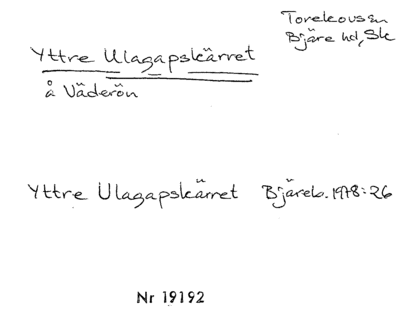 Torekovs sn
Bjäre hd, Sk
Yttre Ulagapskärret
å Väderön
Yttre Ulagapskärret Bjäreb. 1978:26
Nr 19192